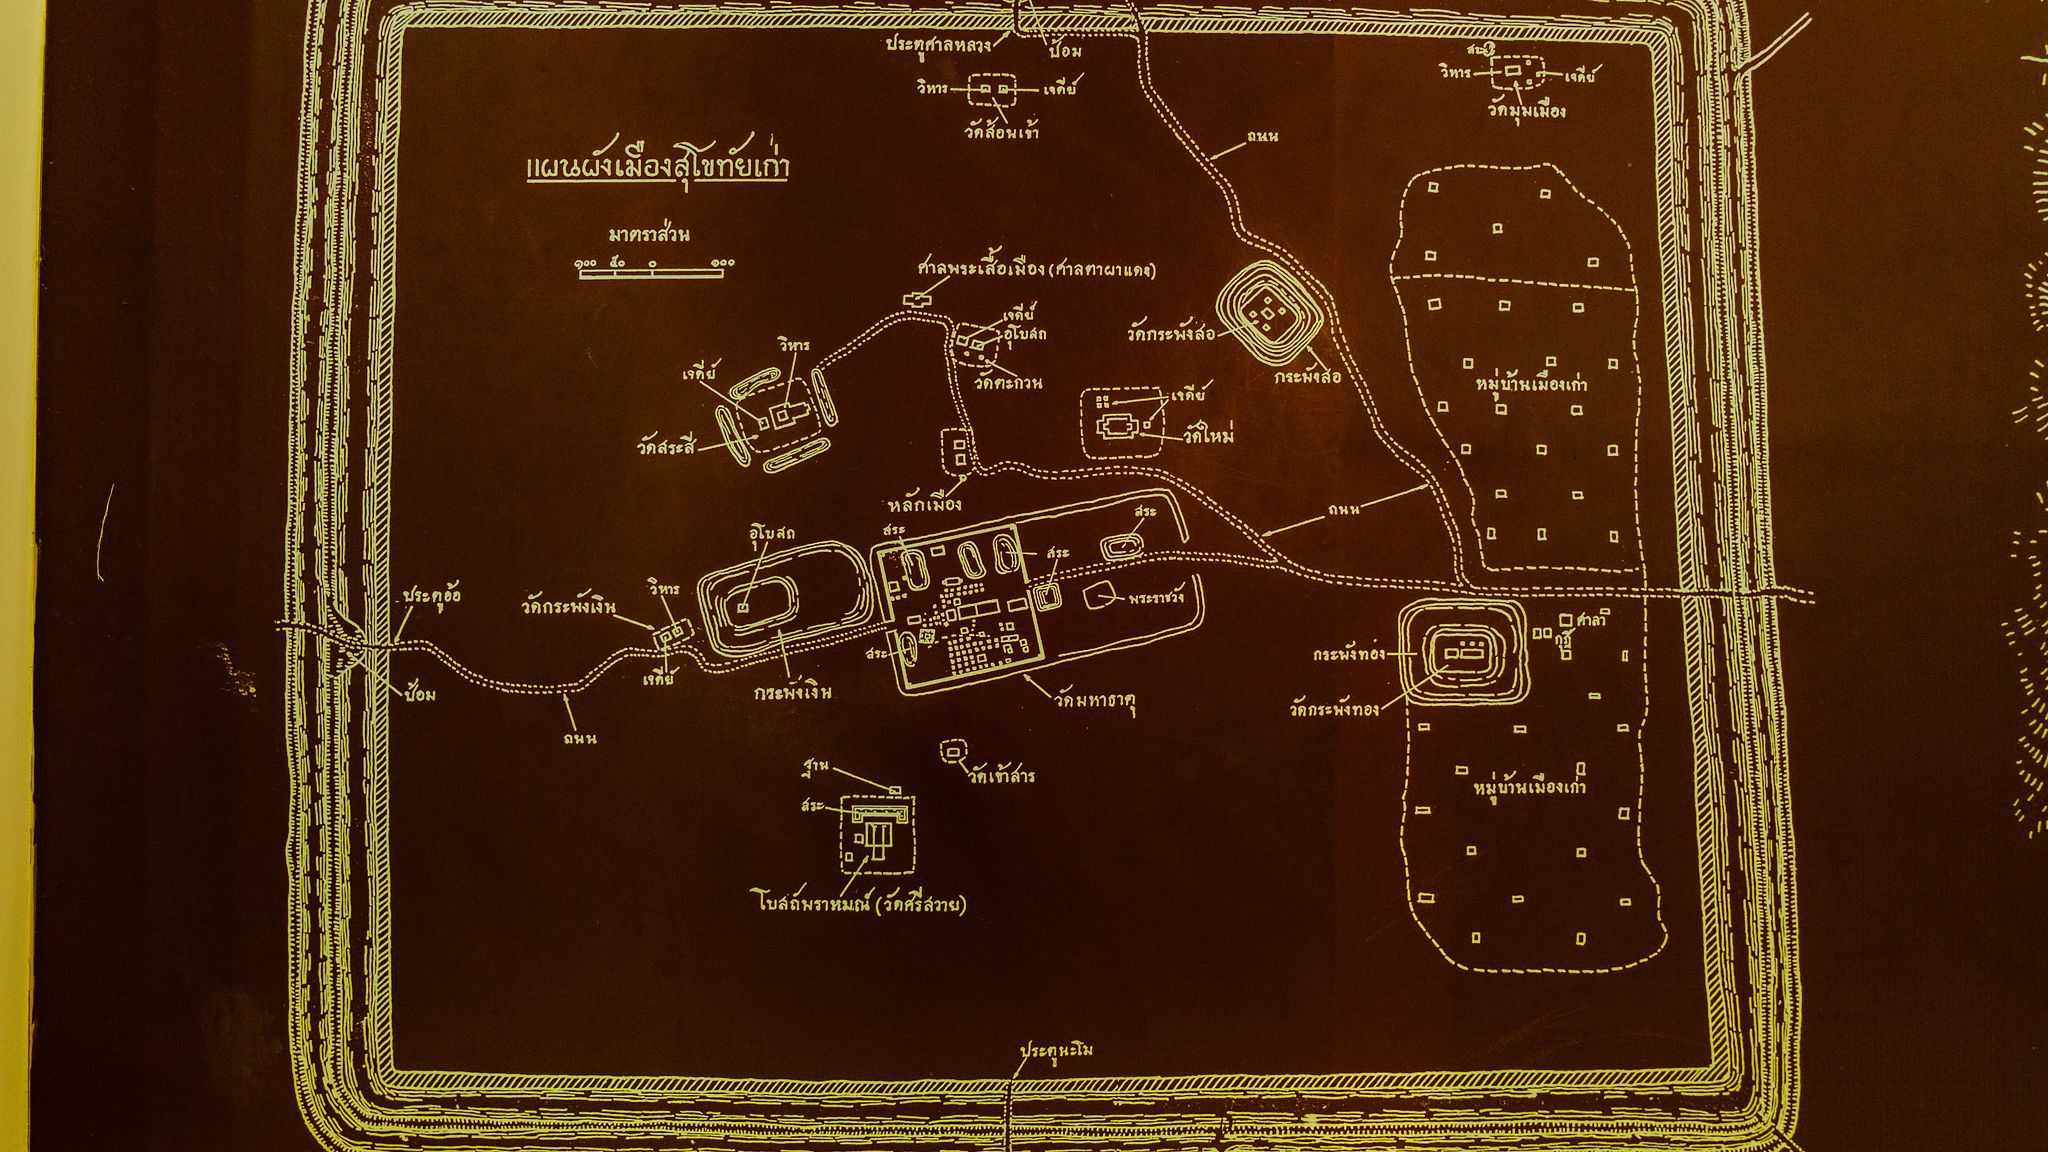 ประตูศาลหลวง
ป้อม
วิหาร
เจดีย์
วัดส้อนเข้า
สระ
วิหาร
เจดีย์
วัดมุมเมือง
ถนน
แผนผังเมืองสุโขทัยเก่า
มาตราส่วน
๑๐๐ ๕๐ ๐ ๑๐๐
ศาลพระเสื้อเมือง (ศาลตาผาแดง)
เจดีย์
อุโบสถ
วัดตะกวน
วัดกระพังสอ
กระพังสอ
วิหาร
เจดีย์
วัดสระสี
เจดีย์
วัดใหม่
หมู่บ้านเมืองเก่า
หลักเมือง
ถนน
สระ
สระ
สระ
อุโบสถ
ประตูอ้อ
วัดกระพังเงิน
วิหาร
พระราชวัง
ศาลา
กุฏิ
สระ
เจดีย์
กระพังเงิน
วัดมหาธาตุ
กระพังทอง
วัดกระพังทอง
ป้อม
ถนน
วัดเข้าสาร
ฐาน
สระ
หมู่บ้านเมืองเก่า
โบสถ์พราหมณ์ (วัดศรีสวาย)
ประตูนะโม